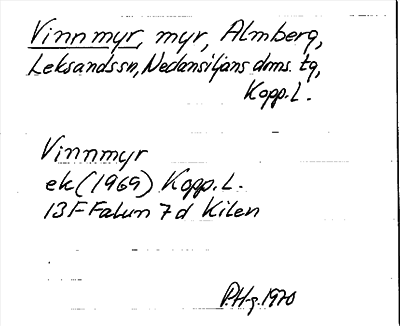 Vinnmyr, myr, Almberg,
Leksandssn, Nedansiljans dms. tg,
Kopp. L.
Vinnmyr
ek (1969) Kopp. L.
13F Falun 7d Kilen
P.H-g. 1970